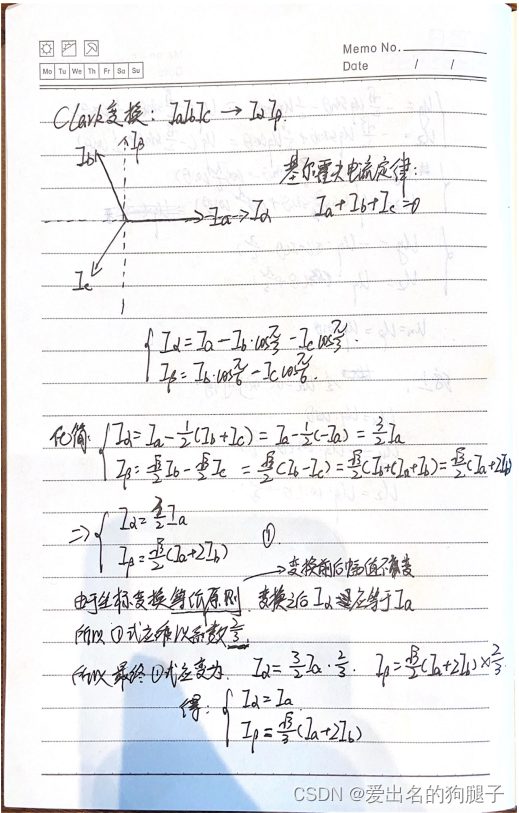 Memo No.
Mo Tu We Th Fr Sa Su
Date / /
Clark变换: IaIbIc → IαIβ.
Ib
Iβ
Ia→Iα
Ic
基尔霍夫电流定律:
Ia+Ib+Ic=0
{ Iα = Ia - Ib·cos π/3 - Ic cos π/3.
Iβ = Ib·cos π/6 - Ic cos π/6.
化简: { Iα = Ia - 1/2(Ib+Ic) = Ia - 1/2(-Ia) = 3/2 Ia
Iβ = √3/2 Ib - √3/2 Ic = √3/2(Ib-Ic) = √3/2(Ib+(Ia+Ib)) = √3/2(Ia+2Ib)
⇒ { Iα = 3/2 Ia
Iβ = √3/2(Ia+2Ib) ①
→变换前后幅值不变
由于坐标变换等幅原则, 变换之后Iα 应等于Ia
所以①式应乘以系数 2/3.
所以最终①式应变为. Iα = 3/2 Ia · 2/3. Iβ = √3/2(Ia+2Ib)×2/3.
得: { Iα = Ia
Iβ = √3/3(Ia+2Ib)
CSDN @爱出名的狗腿子